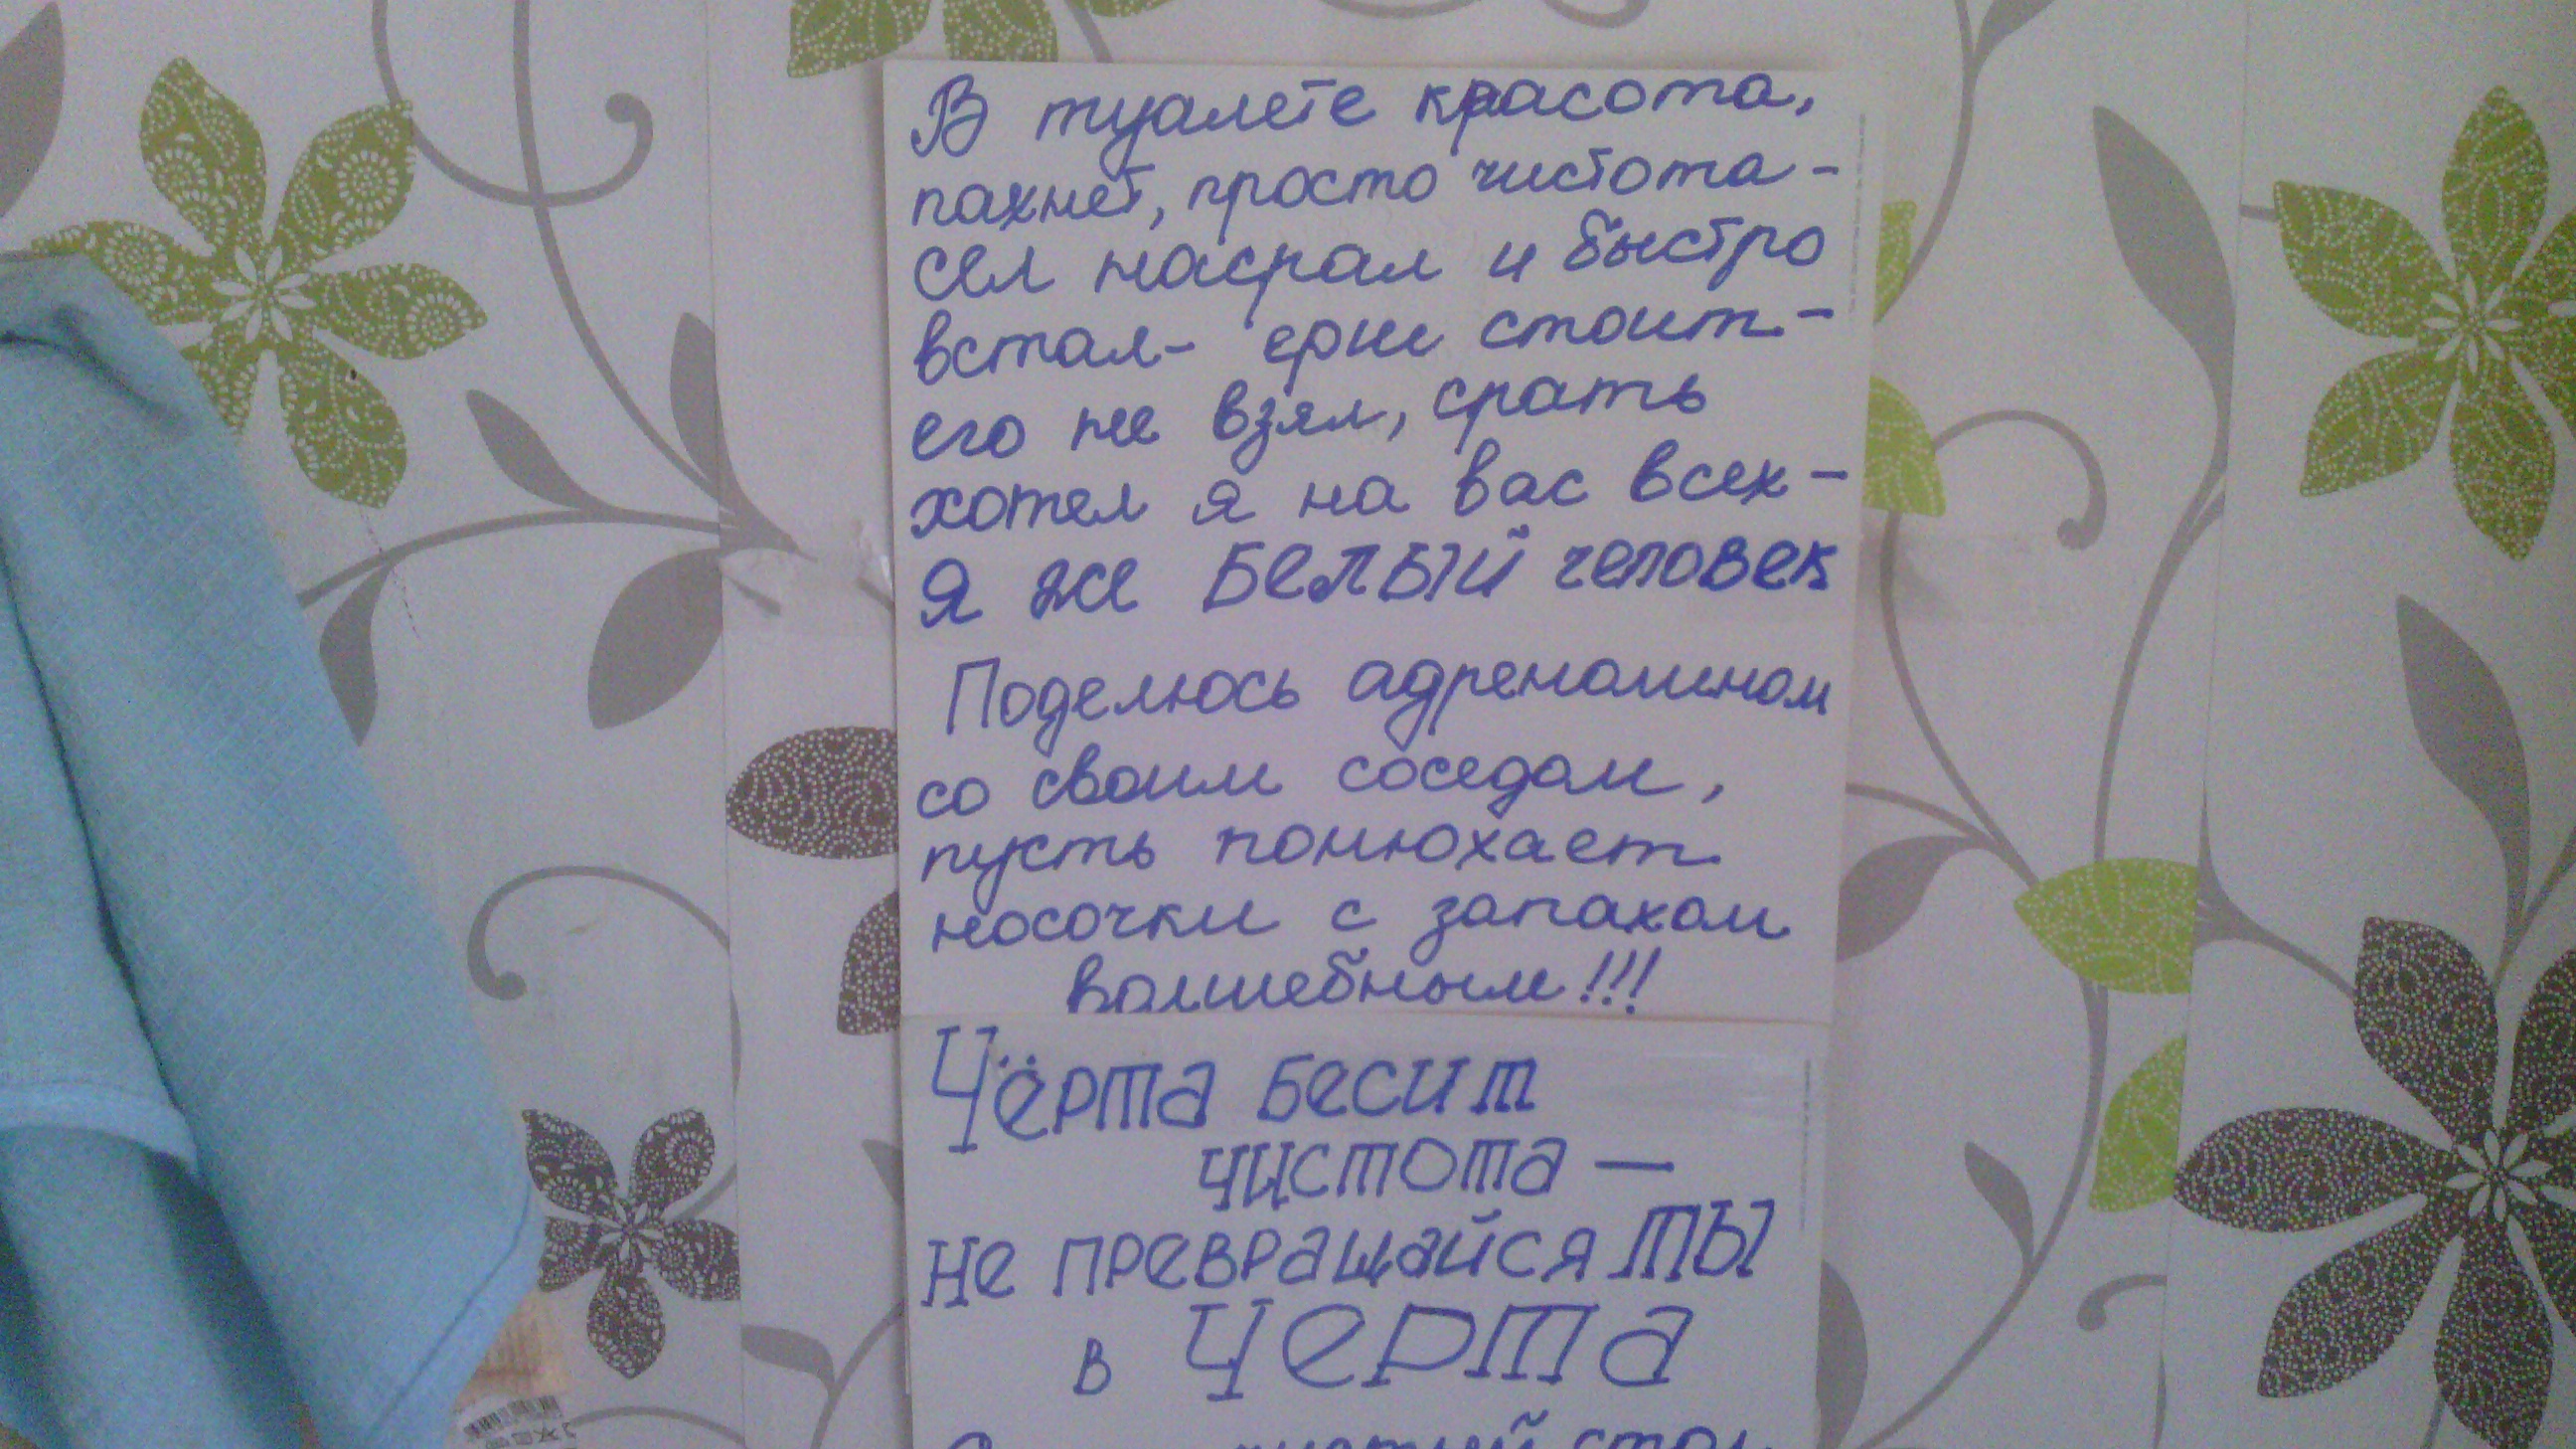 В туалете красота,
пахнет, просто чистота -
сел насрал и быстро
встал - ерш стоит -
его не взял, срать
хотел я на вас всех -
Я же БЕЛЫЙ человек
Поделюсь адреналином
со своим соседом,
пусть понюхает
носочки с запахом
волшебным!!!
Чёрта бесит
чистота —
Не превращайся ТЫ
в Черта